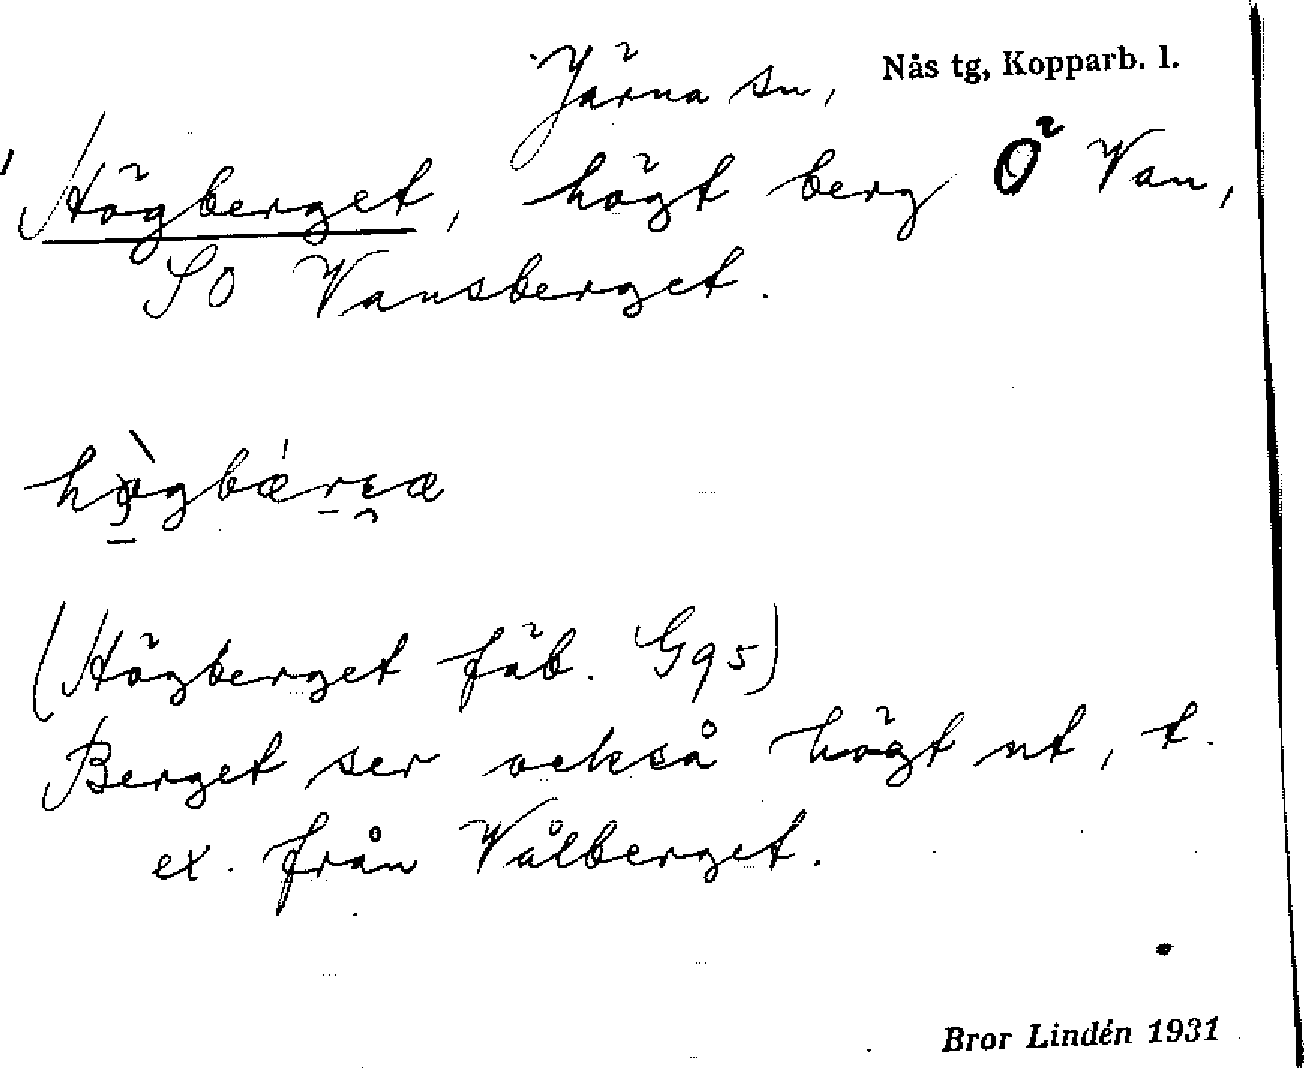 Järna sn, Nås tg, Kopparb. l.
Högberget, högt berg Ö Van,
SO Vansberget.
(Högberget fäb. G95)
Berget ser också högt ut, t.
ex. från Vålberget.
Bror Lindén 1931